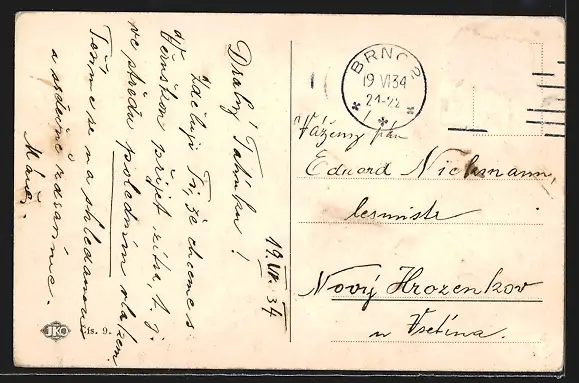 19.VI.34
Drahý Tatínku!
Sděluji Ti, že chceme s
Věruškou přijet zítra, t. j.
ve středu posledním vlakem.
Těšíme se na shledanou
a srdečně zdravíme.
Máňa.
JKO
Čís. 9.
BRNO 2
19 VI 34
21-22
Vážený pán
Eduard Nickmann,
lesmistr
Nový Hrozenkov
u Vsetína.